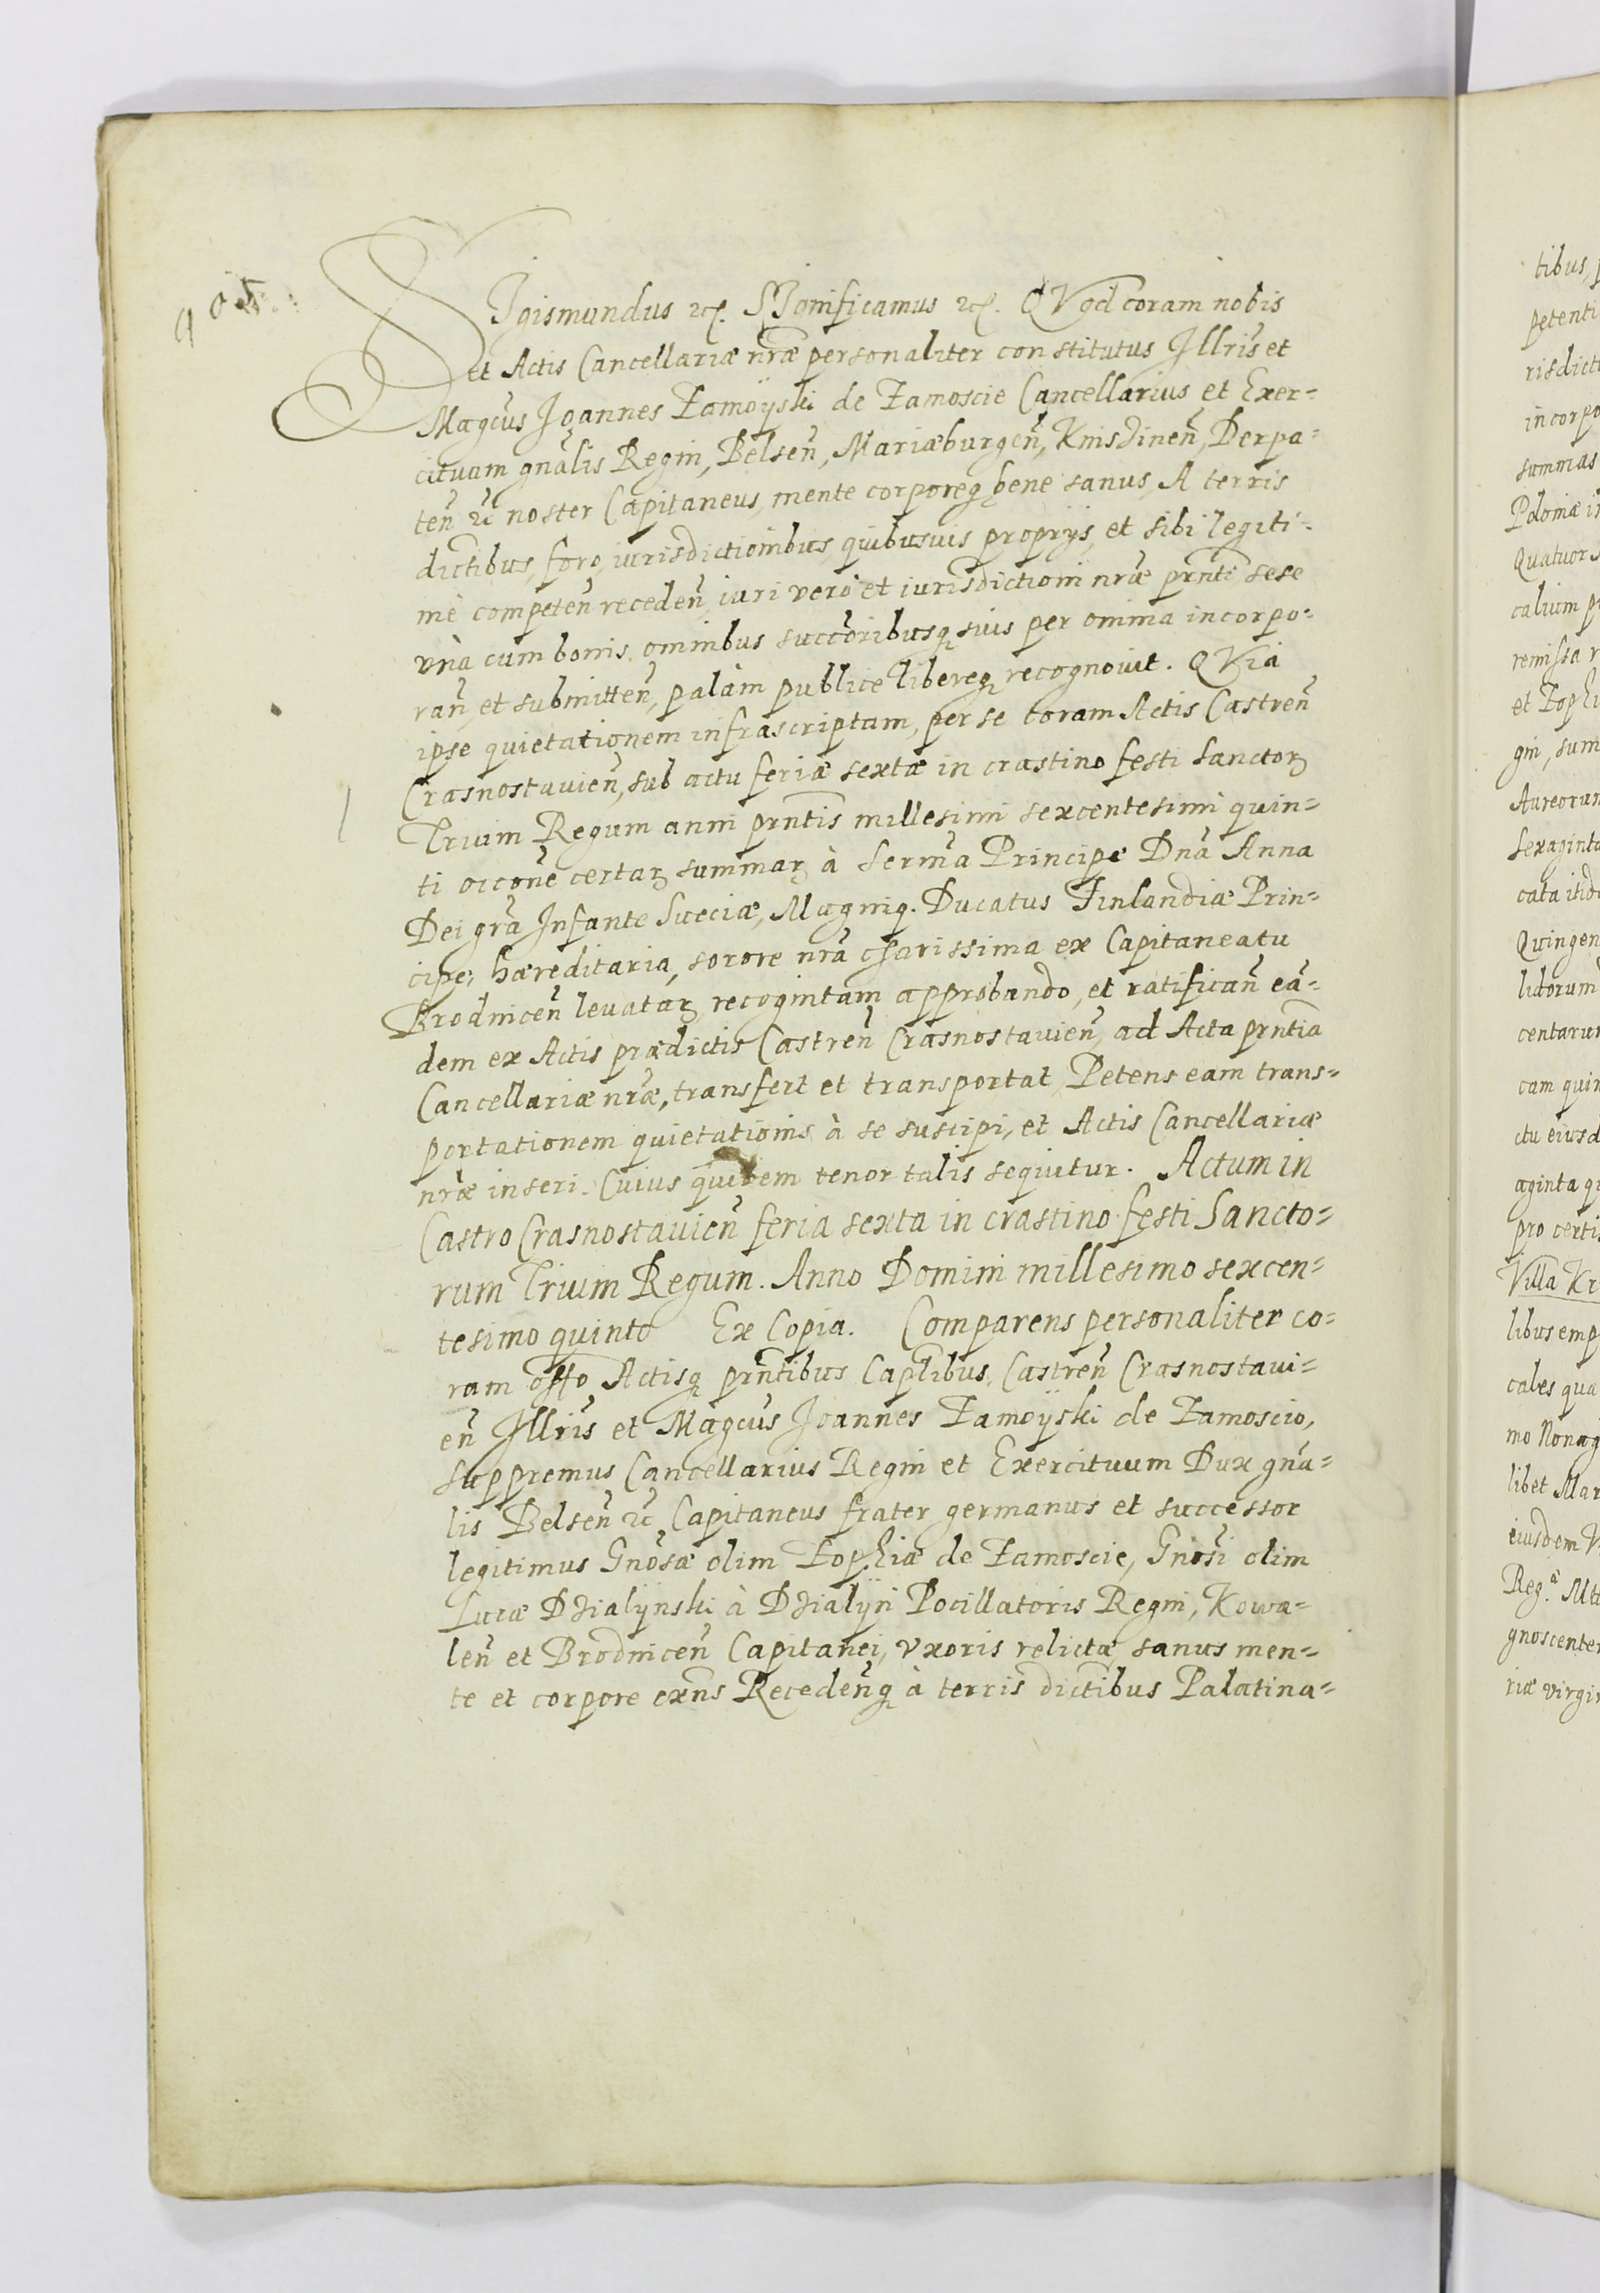 905
SIgismundus ꝛcꝭ. SIgnificamus ꝛcꝭ. QVod coram nobis
et Actis Cancellariæ nr̃æ personaliter constitutus Illris̃ et
Magcus̃ Joannes Zamoÿski de Zamoscie Cancellarius et Exer=
cituum gnãlis Regni, Belseñ, Mariæburgeñ, Knisdineñ, Derpa=
teñ ꝛc̃ noster Capitaneus, mente corporeqꝫ bene sanus, A terris
dictibus̃, foro, iurisdictionibus, quibusuis proprÿs, et sibi legiti=
mè competeñ recedeñ, iuri verò et iurisdictioni nr̃æ prñti sese
vnà cum bonis, omnibus succoribusqꝫ̃ suis per omnia incorpo=
rañ, et submitteñ, palàm publicè libereqꝫ recognouit. QVia
ipse quietationem infrascriptam, per se coram Actis Castreñ
Crasnostauieñ, sub actu feriæ sextæ in crastino festi Sanctorꝝ
Trium Regum anni prñtis millesimi sexcentesimi quin=
ti occone̾ certarꝝ summarꝝ à Serma̾ Principe Dnã Anna
Dei grã Infante Sueciæ, Magniqꝫ. Ducatus Finlandiæ Prin=
cipe, hæreditaria, sorore nrã charissima ex Capitaneatu
Brodniceñ leuatarꝝ recognitam approbando, et ratificañ eã=
dem ex Actis prædictis Castreñ Crasnostauieñ, ad Acta prñtia
Cancellariæ nr̃æ, transfert et transportat, Petens eam trans=
portationem quietationis à se suscipi, et Actis Cancellariæ
nr̃æ inseri. Cuius quidem tenor talis sequitur. Actum in
Castro Crasnostauieñ feria sexta in crastino festi Sancto=
rum Trium Regum. Anno Domini millesimo sexcen=
tesimo quinto Ex Copia. Comparens personaliter co=
ram offo̾ Actisqꝫ prñtibus Caplibus̃, Castreñ Crasnostaui=
eñ Illris̃ et Magcus̃ Joannes Zamoÿski de Zamoscio,
suppremus Cancellarius Regni et Exercituum Dux gnã=
lis Belseñ ꝛc̃ Capitaneus frater germanus et successor
legitimus Gnosæ̃ olim Zophiæ de Zamoscie, Gnosĩ olim
Lucæ Dzialÿnski à Dzialÿn Pocillatoris Regni, Kowa=
leñ et Brodniceñ Capitanei, vxoris relictæ, sanus men=
te et corpore exñs Recedeñqꝫ à terris dictibus̃ Palatina=
tibus,
petenti
risdict
incorpo
summas
Quatuor
calium
remissa
gni, sum
Aureorum
Sexaginta
cata
Quingen
centarum
cam quin
ctu eiusd
aginta qu
pro certis
Villa Kr
libus emp
cales qua
mo Nonag
libet Mar
eiusdem
Reg.
gnoscente
riæ virgin